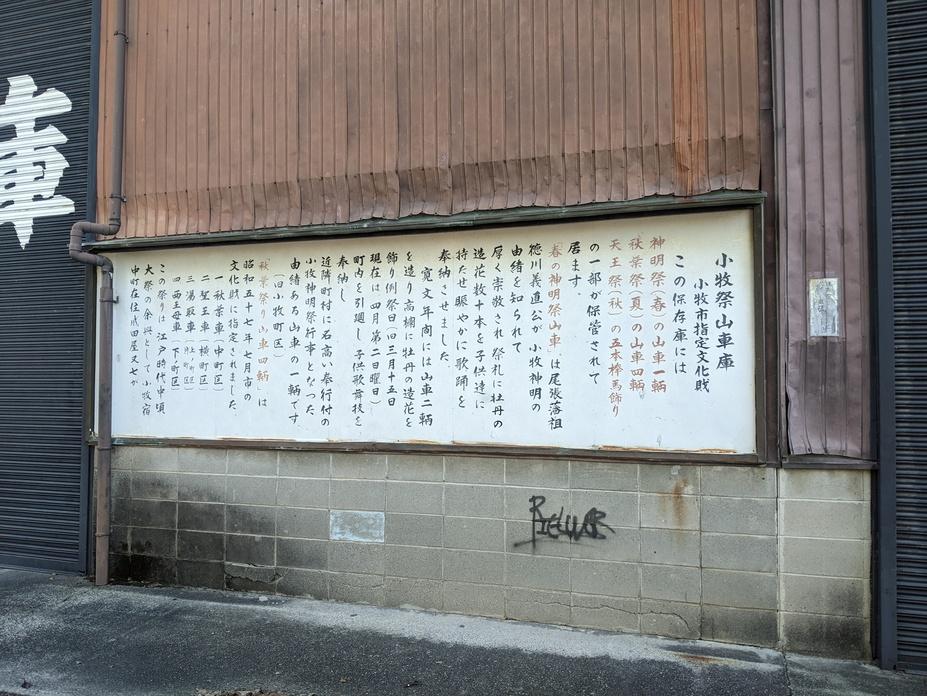 小牧祭山車庫
小牧市指定文化財
この保存庫には
神明祭(春)の山車一輌
秋葉祭(夏)の山車四輌
天王祭(秋)の五本棒馬飾り
の一部が保管されて
居ます。
「春の神明祭山車」は尾張藩祖
徳川義直公が小牧神明の
由緒を知られて
厚く崇敬され祭礼に牡丹の
造花数十本を子供達に
持たせ賑やかに歌踊を
奉納させました。
寛文年間には山車二輌
を造り高欄に牡丹の造花を
飾り例祭日(旧三月十五日
現在は四月第二日曜日)
町内を引廻し子供歌舞伎を
奉納し
近隣町村に名高い奉行付の
小牧神明祭行事となった、
由緒ある山車の一輌です。
(旧小牧町区)
「秋葉祭り山車四輌」は
昭和五十七年七月市の
文化財に指定されました。
一 秋葉車(中町区)
二 聖王車(横町区)
三 湯取車(上町区)
四 西王母車(下町区)
この祭りは江戸時代中頃
大祭の余興として小牧宿
中町在住成田屋又七が
車